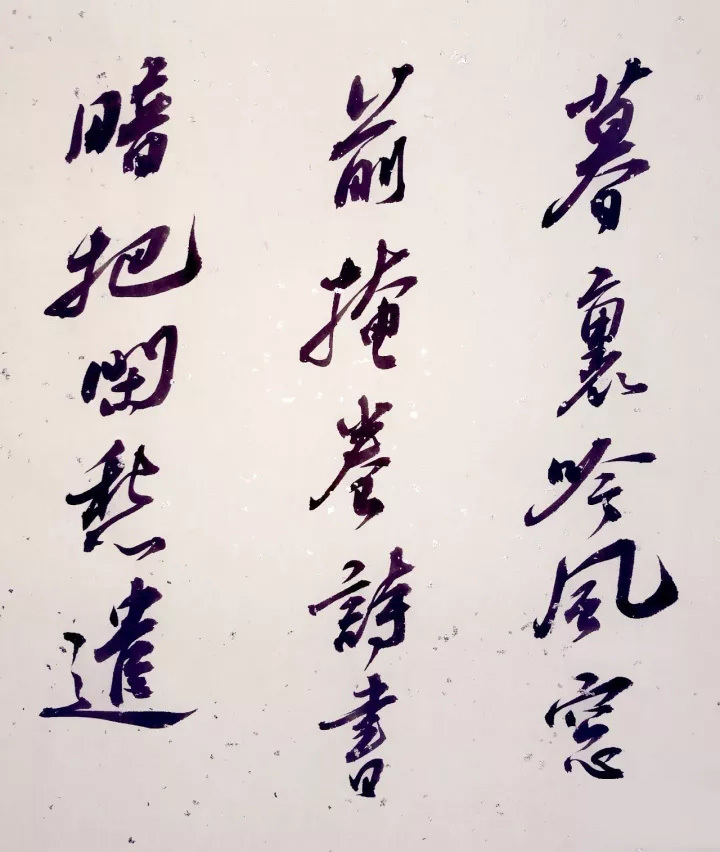 暮裏吟風窓
前掩卷詩書
暗把閑愁遣